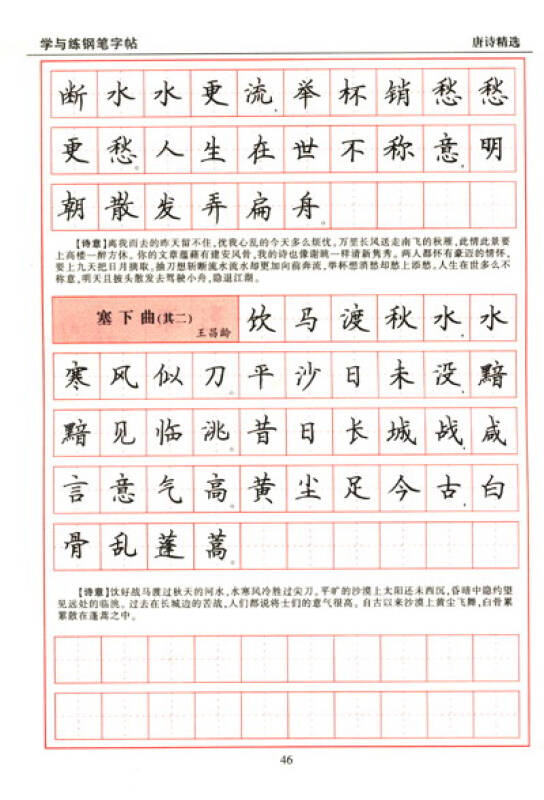 学与练钢笔字帖 唐诗精选
断水水更流,举杯销愁愁
更愁。人生在世不称意,明
朝散发弄扁舟。
【诗意】离我而去的昨天留不住,扰我心乱的今天多么烦忧。万里长风送走南飞的秋雁,此情此景要
上高楼一醉方休。你的文章蕴藉有建安风骨,我的诗也像谢眺一样清新隽秀。两人都怀有豪迈的情怀,
要上九天把日月摘取。抽刀想斩断流水流水却更加向前奔流,举杯想消愁却愁上添愁。人生在世多么不
称意,明天且披头散发去驾驶小舟,隐退江湖。
塞下曲(其二)
王昌龄
饮马渡秋水,水
寒风似刀。平沙日未没,黯
黯见临洮。昔日长城战,咸
言意气高。黄尘足今古,白
骨乱蓬蒿。
【诗意】饮好战马渡过秋天的河水,水寒风冷胜过尖刀。平旷的沙漠上太阳还未西沉,昏暗中隐约望
见远处的临洮。过去在长城边的苦战,人们都说将士们的意气很高。自古以来沙漠上黄尘飞舞,白骨累
累散在蓬蒿之中。
46